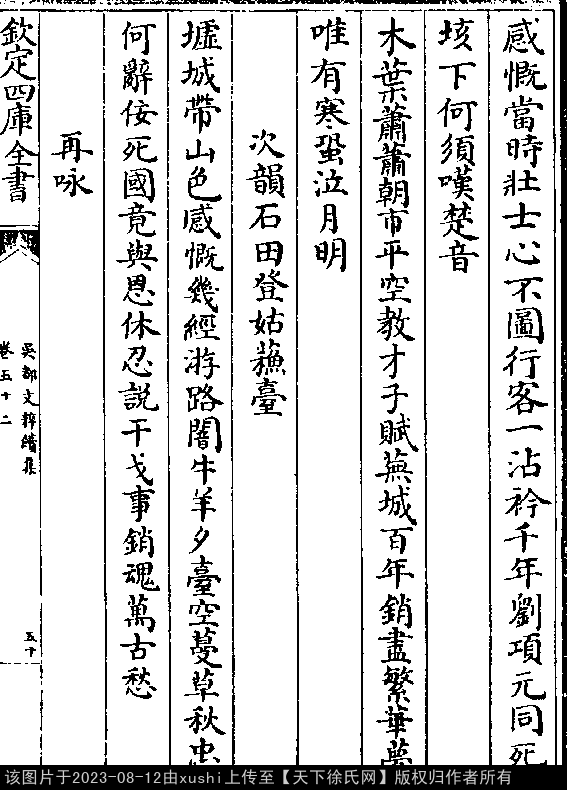 感慨當時壯士心不圖行客一沾衿千年劉項元同死
垓下何須嘆楚音
木葉蕭蕭朝市平空教才子賦蕪城百年銷盡繁華夢
唯有寒蛩泣月明
次韻石田登姑蘓臺
墟城帶山色感慨幾經游路闇牛羊夕臺空蔓草秋忠
何辭佞死國竟與恩休忍説干戈事銷魂萬古愁
再咏
欽定四庫全書
吳都文粹續集
卷五十二
五十
该图片于2023-08-12由xushi上传至【天下徐氏网】版权归作者所有